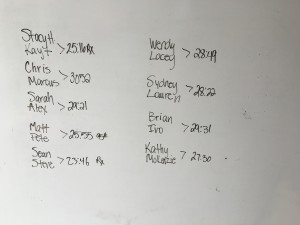 Stacy H
Kay T > 25:16 Rx
Chris
Marcus > 30:32
Sarah
Alex > 29:21
Matt
Pete > 25:55
Sean
Steve > 25:46 Rx
Wendy
Lacey > 28:49
Sydney
Lauren > 28:22
Brian
Ivo > 29:31
Kathy
> 27:30